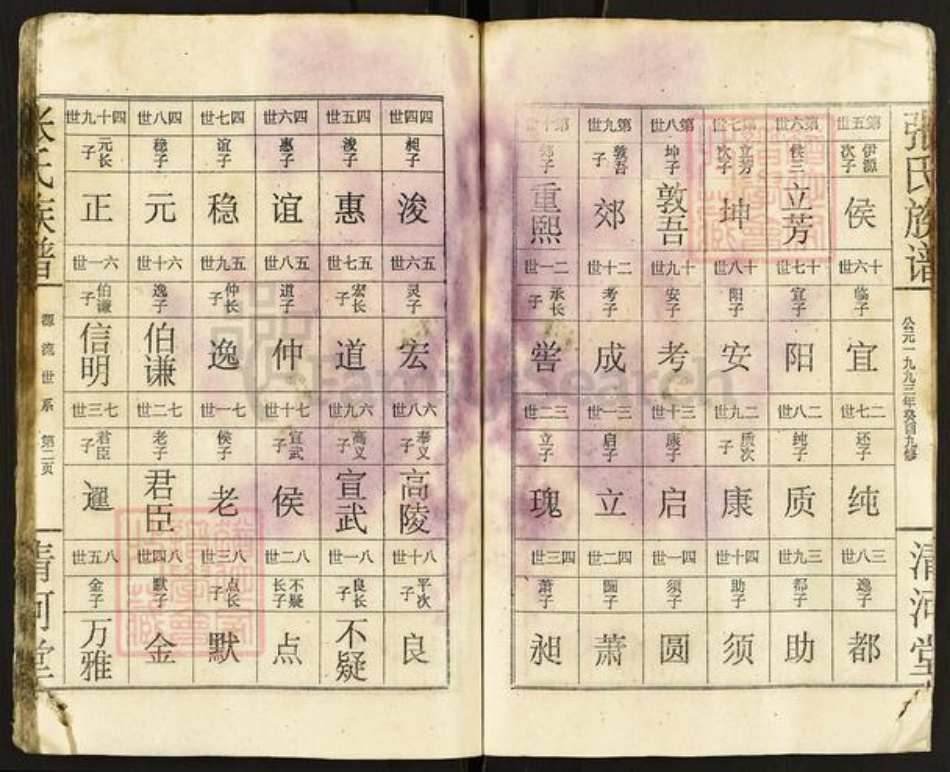 張氏族谱
公元一九九三年癸酉九修
清河堂
第五世 第六世 第七世 第八世 第九世 第十世
伊源次子 侯三子 立芳次子 坤子 敦吾子 郊子
侯 立芳 坤 敦吾 郊 重熙
十六世 十七世 十八世 十九世 二十世 二一世
临子 宜子 阳子 安子 考子 承长子
宜 阳 安 考 成 喾
二七世 二八世 二九世 三十世 三一世 三二世
还子 纯子 质次子 康子 启子 立子
纯 质 康 启 立 瑰
三八世 三九世 四十世 四一世 四二世 四三世
逸子 都子 助子 须子 圆子 萧子
都 助 须 圆 萧 昶
四四世 四五世 四六世 四七世 四八世 四十九世
昶子 浚子 惠子 谊子 稳子 元长子
浚 惠 谊 稳 元 正
五六世 五七世 五八世 五九世 六十世 六一世
灵子 宏长子 道子 仲长子 逸子 伯谦子
宏 道 仲 逸 伯谦 信明
六八世 六九世 七十世 七一世 七二世 七三世
奉义子 高义子 宣武子 侯子 老子 君臣子
高陵 宣武 侯 老 君臣 暹
八十世 八一世 八二世 八三世 八四世 八五世
平次子 良长子 不疑长子 点长子 默子 金子
良 不疑 点 默 金 万雅
张氏族谱
源流世系 第二页
清河堂
FamilySearch